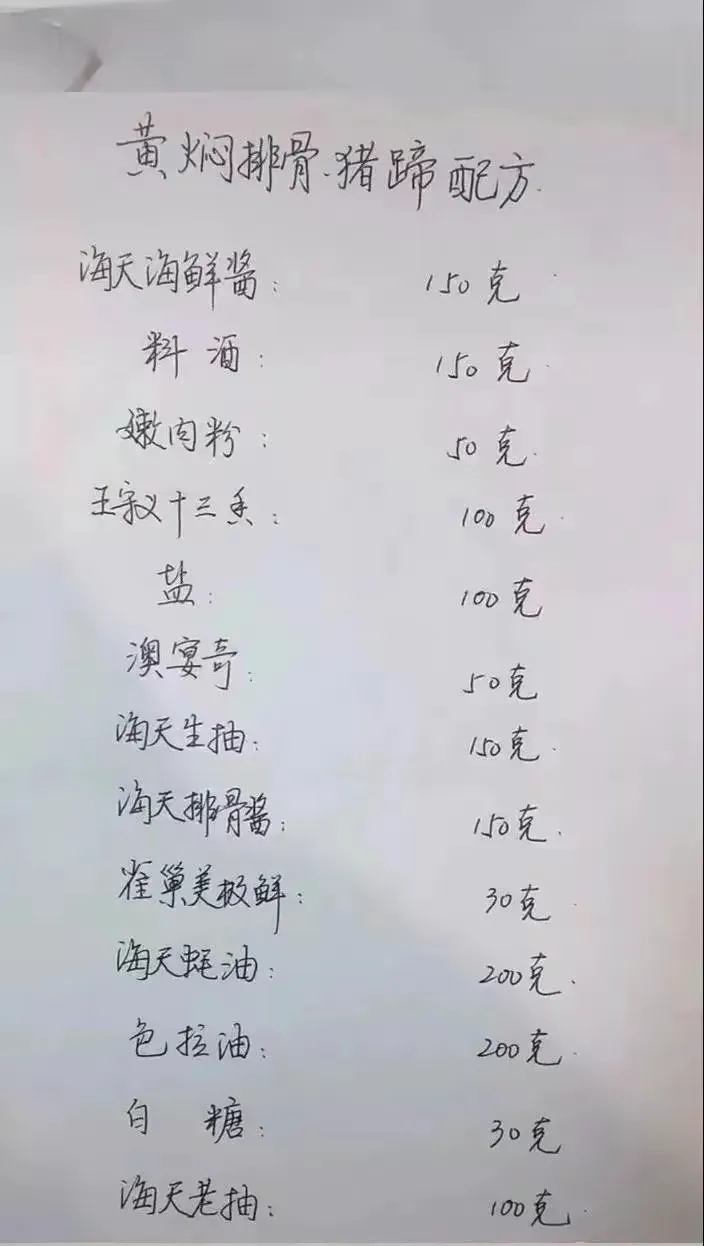 黄焖排骨.猪蹄配方.
海天海鲜酱: 150克
料酒: 150克
嫩肉粉: 50克.
王守义十三香: 100克
盐: 100克
澳宴奇: 50克
海天生抽: 150克
海天排骨酱: 150克.
雀巢美极鲜: 30克
海天蚝油: 200克.
色拉油: 200克.
白糖: 30克
海天老抽: 100克